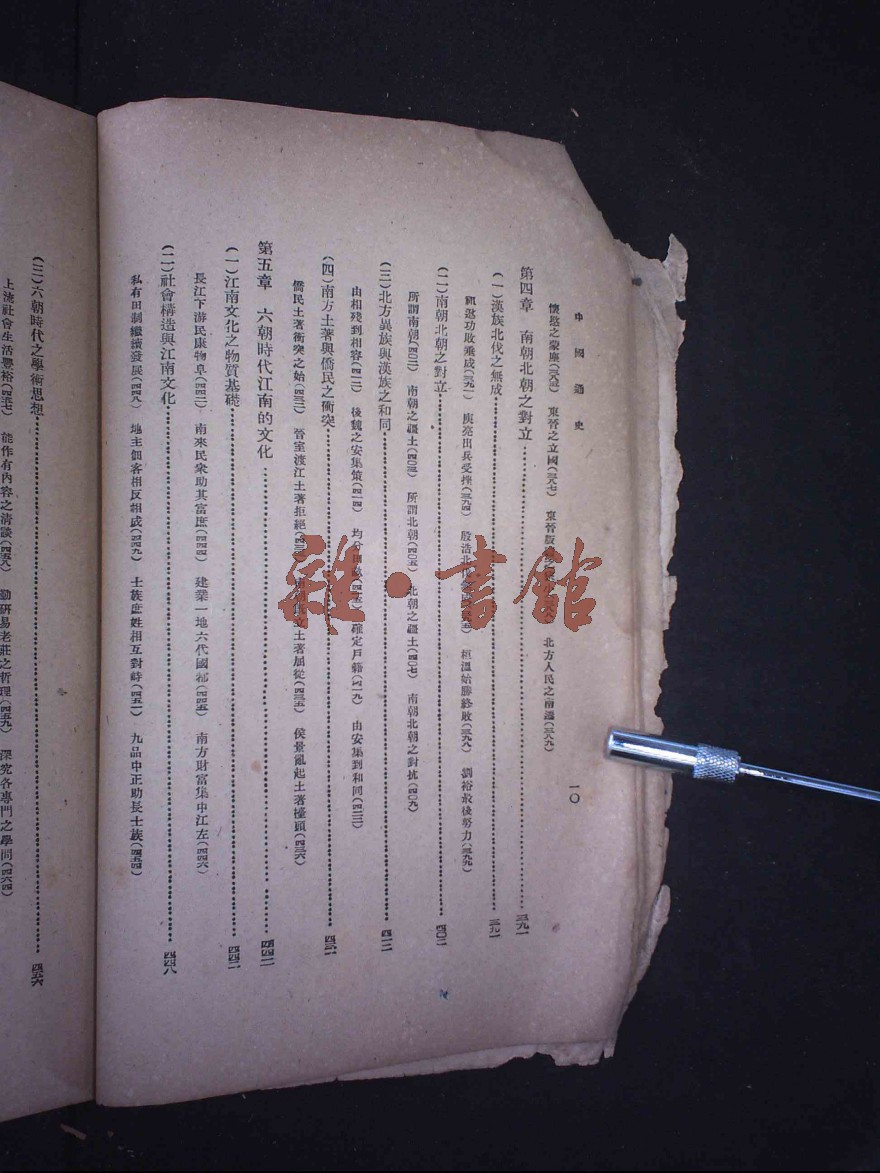 中國通史
一〇
懷愍之蒙塵(三八三) 東晉之立國(三八七) 東晉 北方人民之南遷(三八九)
第四章 南朝北朝之對立……三九一
(一)漢族北伐之無成……三九一
祖逖功敗垂成(三九一) 庾亮出兵受挫(三九四) 殷浩北伐 桓溫始勝終敗(三九八) 劉裕最後努力(三九九)
(二)南朝北朝之對立……四〇二
所謂南朝(四〇二) 南朝之疆土(四〇三) 所謂北朝(四〇五) 北朝之疆土(四〇七) 南朝北朝之對抗(四〇九)
(三)北方異族與漢族之和同……四一二
由相殘到相容(四一二) 後魏之安集策(四一四) 均分田 確定戶籍(四一九) 由安集到和同(四二二)
(四)南方土著與僑民之衝突……四三二
僑民土著衝突之始(四三二) 晉室渡江土著拒絕 土著屈從(四三五) 侯景亂起土著擡頭(四三六)
第五章 六朝時代江南的文化……四四二
(一)江南文化之物質基礎……四四二
長江下游民康物阜(四四二) 南來民衆助其富庶(四四四) 建業一地六代國都(四四五) 南方財富集中江左(四四六)
(二)社會構造與江南文化……四四八
私有田制繼續發展(四四八) 地主佃客相反相成(四四九) 士族庶姓相互對峙(四五一) 九品中正助長士族(四五四)
(三)六朝時代之學術思想……四五六
上流社會生活豐裕(四五七) 能作有內容之清談(四五八) 勤研易老莊之哲理(四五九) 深究各專門之學問(四六四)
雜·書館